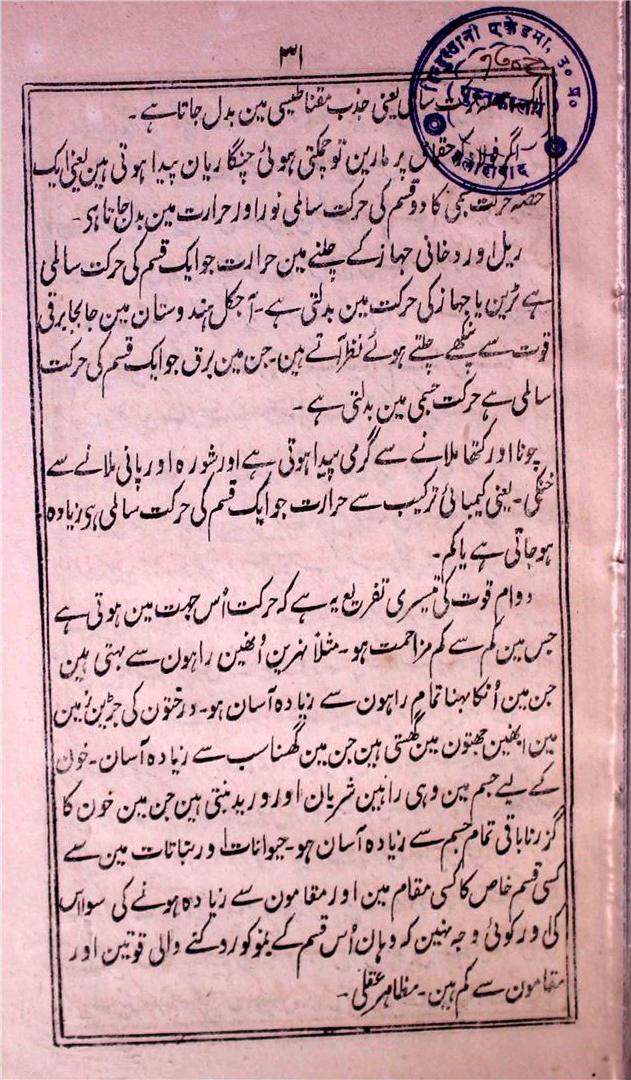 ۳۱
हिन्दुस्तानी एकेडमी, उ० प्र०
पुस्तकालय
इलाहाबाद
حرکت سالمی یعنی جذب مقناطیسی مین بدل جاتا ہے ۔
اگر فولاد کو چقماق پر مارین تو چمکتی ہوئی چنگاریان پیدا ہوتی ہین یعنی ایک
حصہ حرکت جسمی کا دو قسم کی حرکت سالمی نور اور حرارت مین بدل جاتا ہی ۔
ریل اور دخانی جہاز کے چلنے مین حرارت جو ایک قسم کی حرکت سالمی
ہے ٹرین یا جہاز کی حرکت مین بدلتی ہے ۔ آجکل ہندوستان مین جابجا برقی
قوت سے پنکھے چلتے ہوئے نظر آتے ہین ۔ جن مین برق جو ایک قسم کی حرکت
سالمی ہے حرکت جسمی مین بدلتی ہے ۔
چونا اور کتھا ملانے سے گرمی پیدا ہوتی ہے اور شورہ اور پانی ملانے سے
خنکی ۔ یعنی کیمیائی ترکیب سے حرارت جو ایک قسم کی حرکت سالمی ہی زیادہ
ہو جاتی ہے یا کم ۔
دوام قوت کی تیسری تفریع یہ ہے کہ حرکت اُس جہت مین ہوتی ہے
جس مین کم سے کم مزاحمت ہو ۔ مثلاً نہرین اُنھین راہون سے بہتی ہین
جن مین اُنکا بہنا تمام راہون سے زیادہ آسان ہو ۔ درختون کی جڑین زمین
مین اُنھین جہتون مین گھستی ہین جن مین گھسنا سب سے زیادہ آسان ۔ خون
کے لیے جسم مین وہی راہین شریان اور ورید بنتی ہین جن مین خون کا
گزرنا باقی تمام جسم سے زیادہ آسان ہو ۔ حیوانات اور نباتات مین سے
کسی قسم خاص کا کسی مقام مین اور مقامون سے زیادہ ہونے کی سوا اس
کی اور کوئی وجہ نہین کہ وہان اُس قسم کے نمو کو روکنے والی قوتین اور
مقامون سے کم ہین ۔ مظاہر عقلی ۔